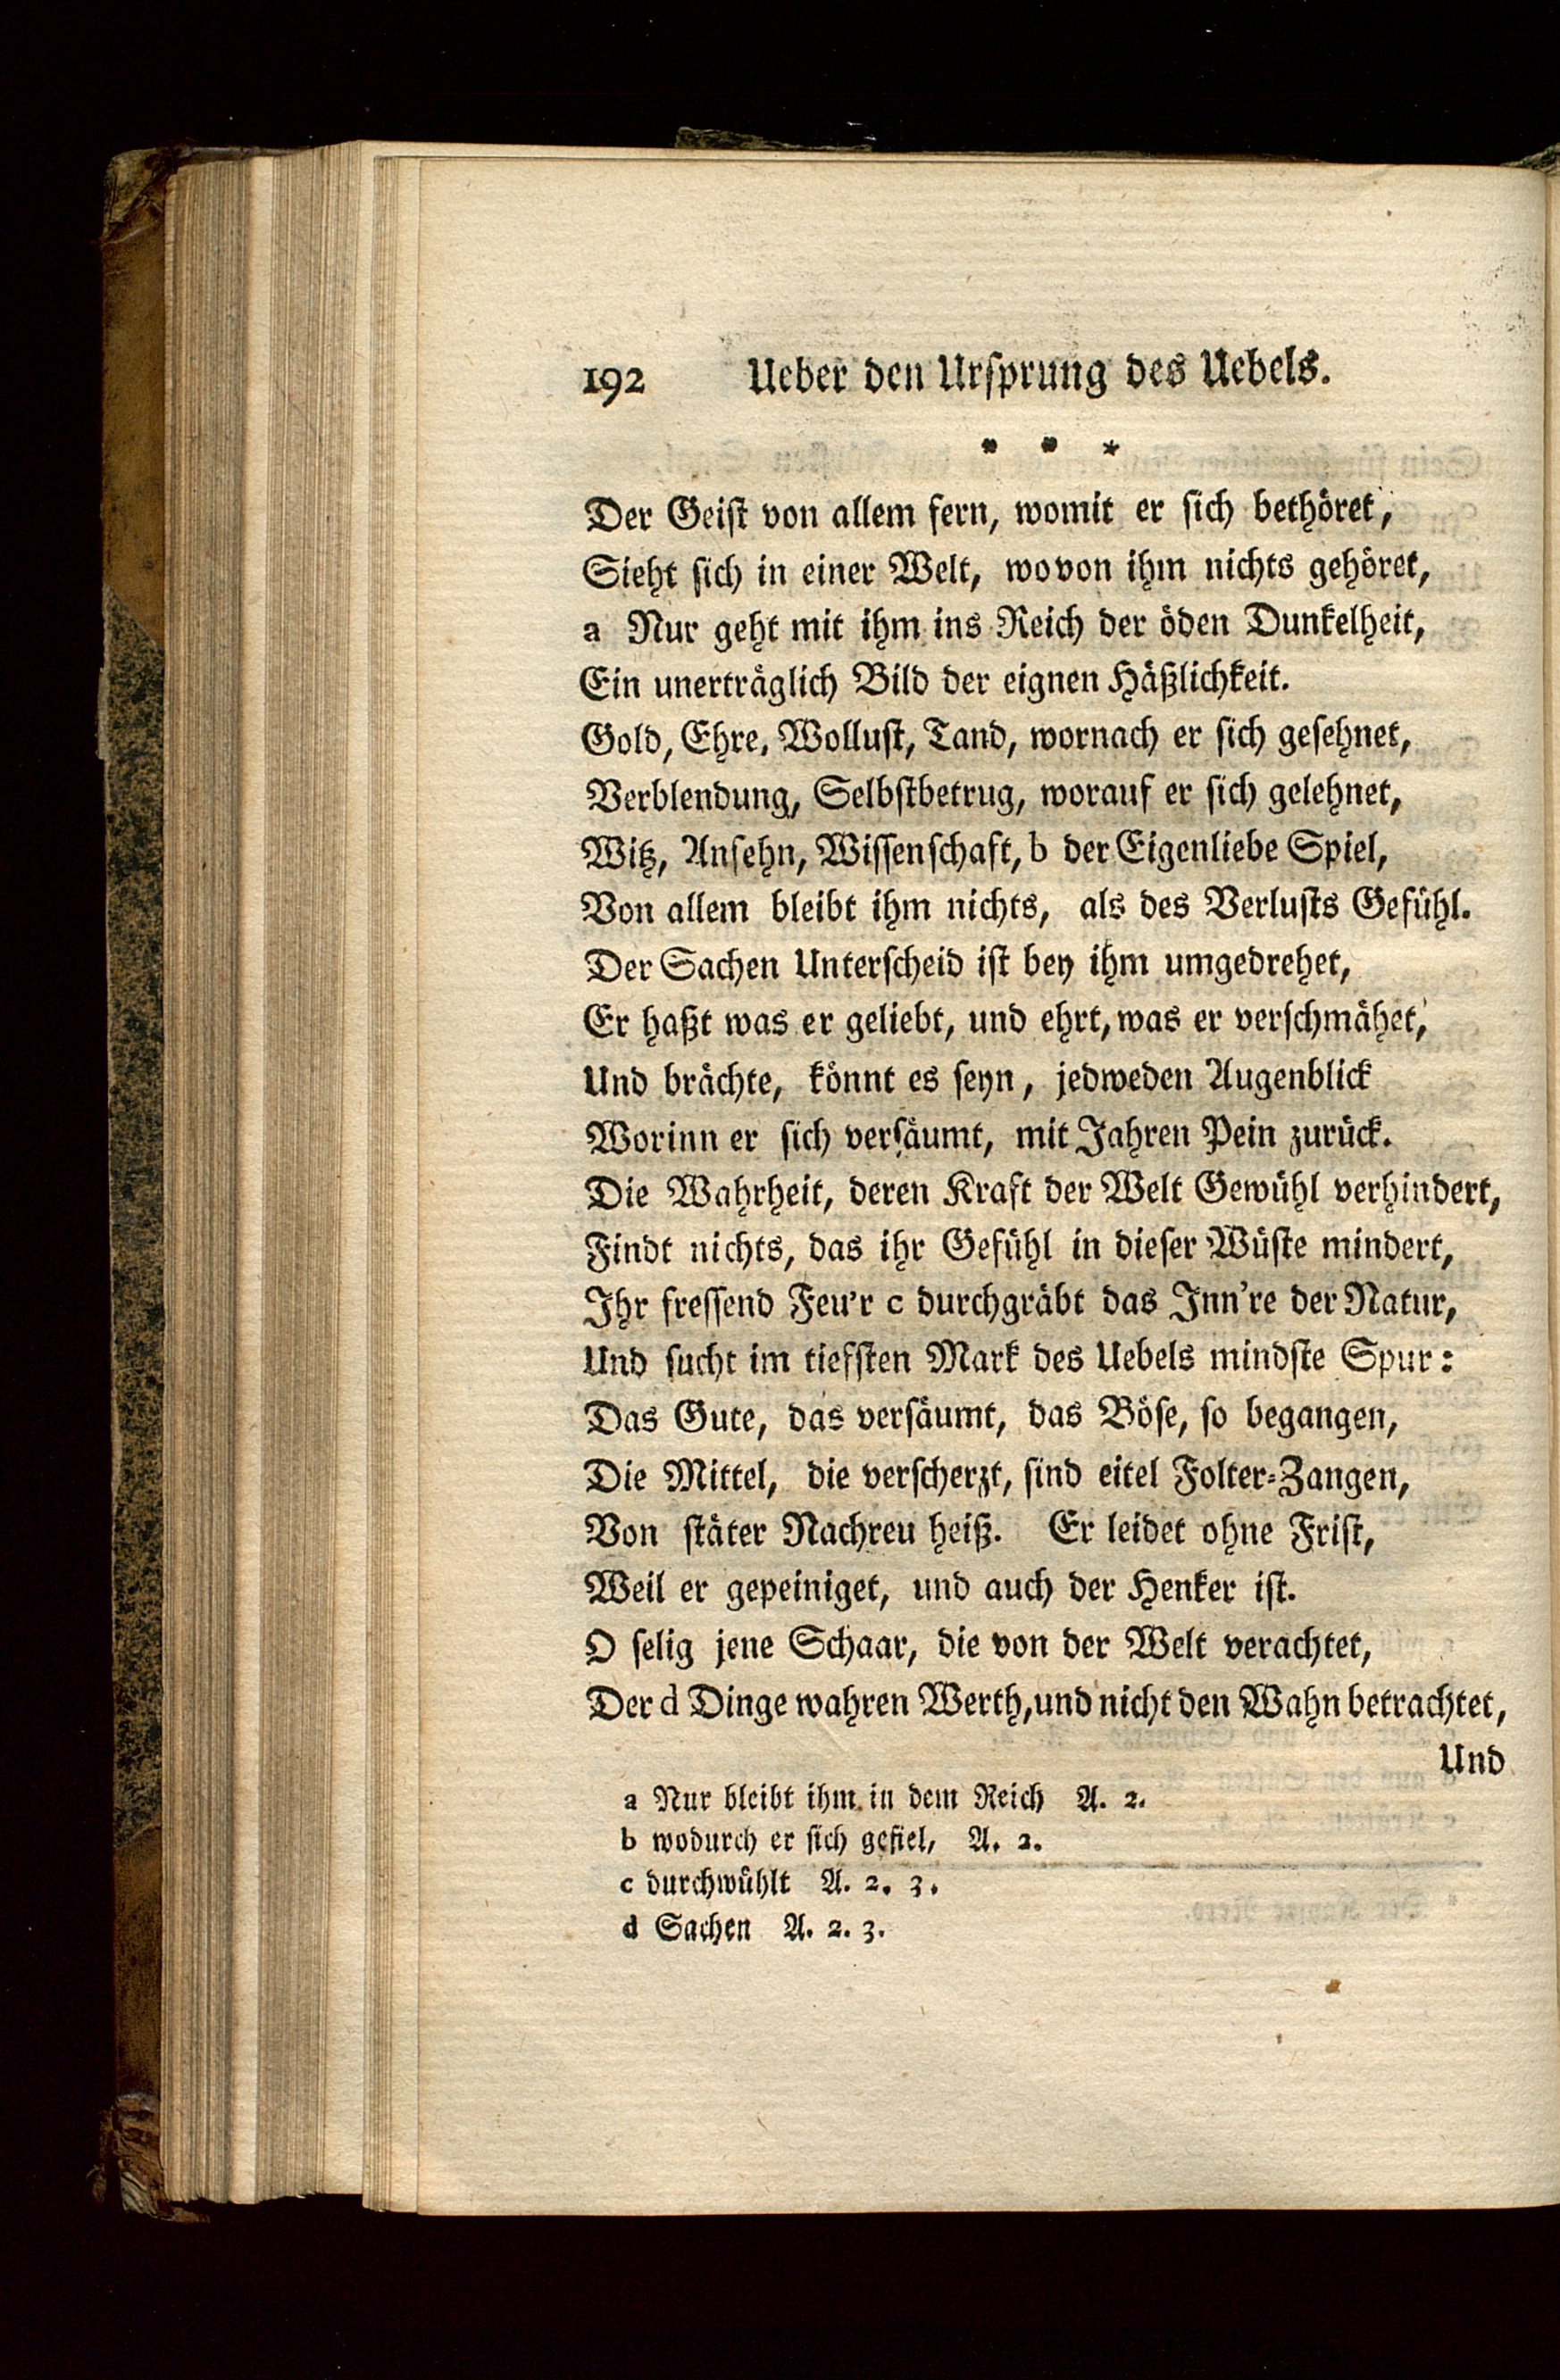 192 Ueber den Ursprung des Uebels.
* * *
Der Geist von allem fern, womit er sich bethöret,
Sieht sich in einer Welt, wovon ihm nichts gehöret,
a Nur geht mit ihm ins Reich der öden Dunkelheit,
Ein unerträglich Bild der eignen Häßlichkeit.
Gold, Ehre, Wollust, Tand, wornach er sich gesehnet,
Verblendung, Selbstbetrug, worauf er sich gelehnet,
Witz, Ansehn, Wissenschaft, b der Eigenliebe Spiel,
Von allem bleibt ihm nichts, als des Verlusts Gefühl.
Der Sachen Unterscheid ist bey ihm umgedrehet,
Er haßt was er geliebt, und ehrt, was er verschmähet,
Und brächte, könnt es seyn, jedweden Augenblick
Worinn er sich versäumt, mit Jahren Pein zurück.
Die Wahrheit, deren Kraft der Welt Gewühl verhindert,
Findt nichts, das ihr Gefühl in dieser Wüste mindert,
Ihr fressend Feu'r c durchgräbt das Inn're der Natur,
Und sucht im tiefsten Mark des Uebels mindste Spur:
Das Gute, das versäumt, das Böse, so begangen,
Die Mittel, die verscherzt, sind eitel Folter-Zangen,
Von stäter Nachreu heiß. Er leidet ohne Frist,
Weil er gepeiniget, und auch der Henker ist.
O selig jene Schaar, die von der Welt verachtet,
Der d Dinge wahren Werth, und nicht den Wahn betrachtet,
Und
a Nur bleibt ihm in dem Reich A. 2.
b wodurch er sich gefiel, A. 2.
c durchwühlt A. 2. 3.
d Sachen A. 2. 3.